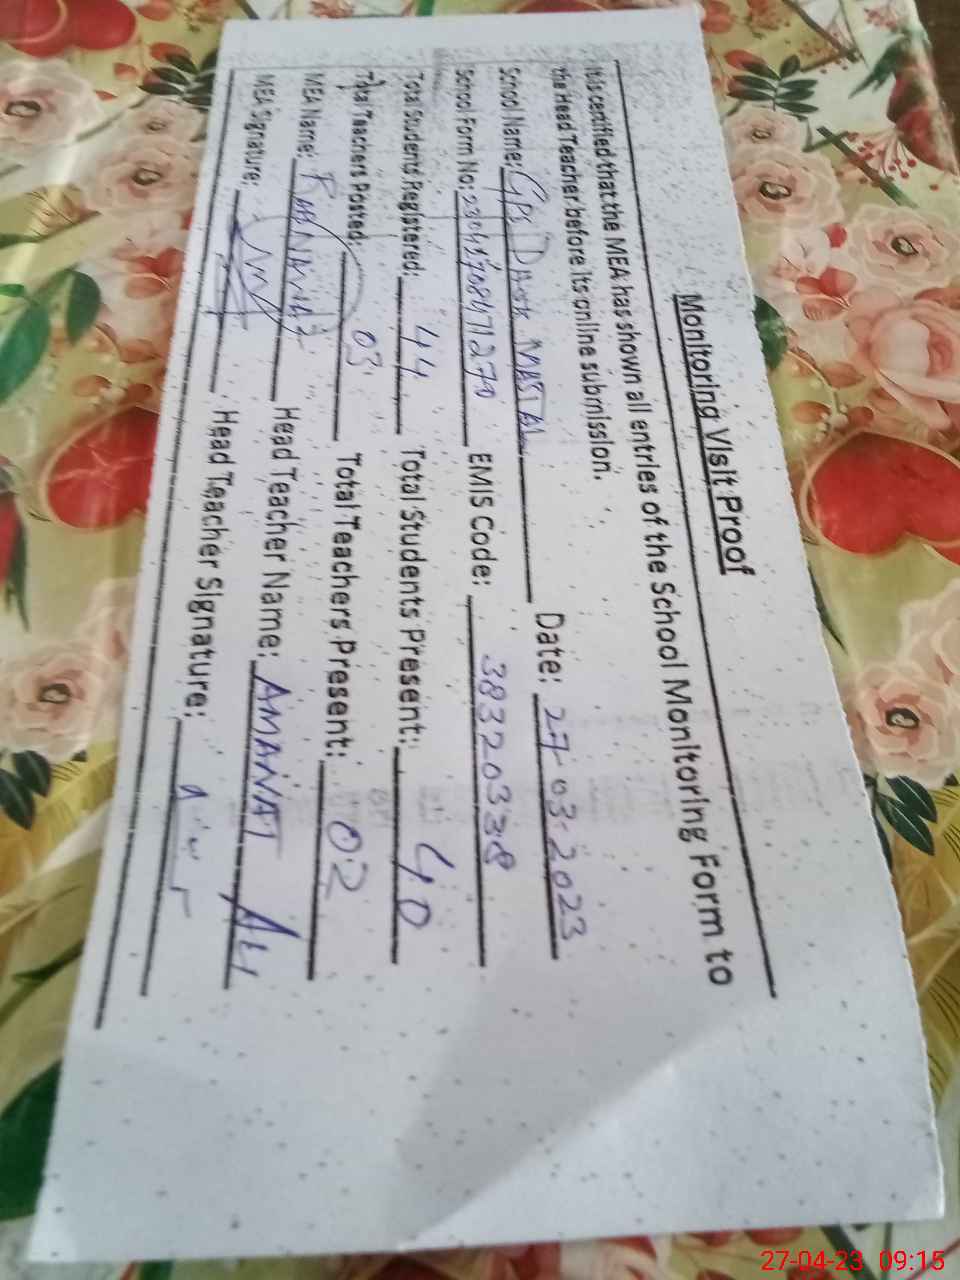 Monitoring Visit Proof
It is certified that the MEA has shown all entries of the School Monitoring Form to
the Head Teacher before its online submission.
School Name: GPS DARR MASTAL Date: 27-03-2023
School Form No: EMIS Code: 38320338
Total Student Registered: 44 Total Students Present: 40
Total Teachers Posted: 03 Total Teachers Present: 02
MEA Name: Head Teacher Name: AMANAT ALI
MEA Signature: Head Teacher Signature:
27-04-23 09:15